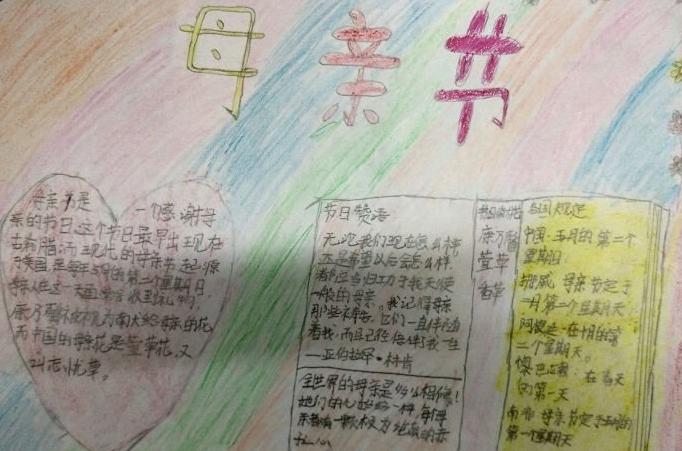 母亲节
母亲节是一个感谢母
亲的节日,这个节日最早出现在
古希腊,而现代的母亲节起源
美国,是每年5月的第二个星期日
母亲们在这一天里会收到礼物,
康乃馨被视为献给母亲的花,
而中国的母亲花是萱草花,又
叫忘忧草。
节日赞语
无论我们现在怎么样,
还是希望以后会怎么样,
都应当归功于我天使
一般的母亲。我记得母亲
那些祷告,它们一直伴随
着我,而且已经陪伴了我一生
—亚伯拉罕·林肯
全世界的母亲是多么相像!
她们的心始终一样,每个母
亲都有一颗极为纯真的赤
子之心
康乃馨
萱草
香草
各国规定
中国:五月的第二个
星期日
挪威 母亲节定于
二月第二个星期天
阿根廷:在十月的第
二个星期天。
黎巴嫩:在春天
的第一天
南非 母亲节定于五月的
第一个星期天